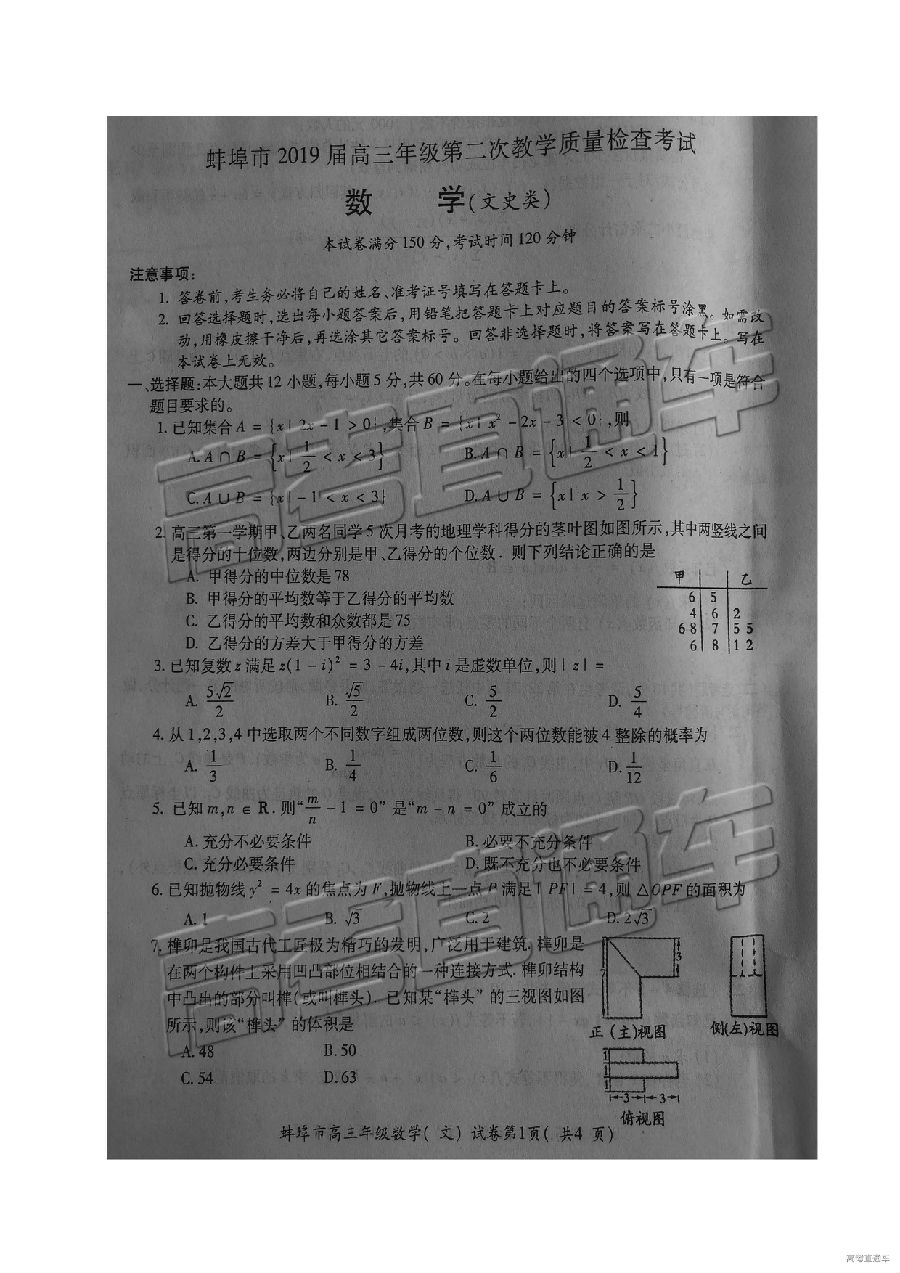 蚌埠市 2019 届高三年级第二次教学质量检查考试
数 学(文史类)
本试卷满分 150 分,考试时间 120 分钟
注意事项:
1. 答卷前,考生务必将自己的姓名、准考证号填写在答题卡上。
2. 回答选择题时,选出每小题答案后,用铅笔把答题卡上对应题目的答案标号涂黑。如需改
动,用橡皮擦干净后,再选涂其它答案标号。回答非选择题时,将答案写在答题卡上。写在
本试卷上无效。
一、选择题:本大题共 12 小题,每小题 5 分,共 60 分。在每小题给出的四个选项中,只有一项是符合
题目要求的。
1. 已知集合 A = {x| 2x - 1 > 0},集合 B = {x| x² - 2x - 3 < 0},则
A. A ∩ B = {x| 1/2 < x < 3} B. A ∩ B = {x| 1/2 < x < 1}
C. A ∪ B = {x| -1 < x < 3} D. A ∪ B = {x| x > 1/2}
2. 高三第一学期甲、乙两名同学 5 次月考的地理学科得分的茎叶图如图所示,其中两竖线之间
是得分的十位数,两边分别是甲、乙得分的个位数. 则下列结论正确的是
A. 甲得分的中位数是 78
B. 甲得分的平均数等于乙得分的平均数
C. 乙得分的平均数和众数都是 75
D. 乙得分的方差大于甲得分的方差
甲 乙
6 5
4 6 2
6 8 7 5 5
6 8 1 2
3. 已知复数 z 满足 z(1 - i)² = 3 - 4i,其中 i 是虚数单位,则 |z| =
A. 5√2/2 B. √5/2 C. 5/2 D. 5/4
4. 从 1,2,3,4 中选取两个不同数字组成两位数,则这个两位数能被 4 整除的概率为
A. 1/3 B. 1/4 C. 1/6 D. 1/12
5. 已知 m,n ∈ R. 则“m/n - 1 = 0”是“m - n = 0”成立的
A. 充分不必要条件 B. 必要不充分条件
C. 充分必要条件 D. 既不充分也不必要条件
6. 已知抛物线 y² = 4x 的焦点为 F,抛物线上一点 P 满足 |PF| = 4,则 △OPF 的面积为
A. 1 B. √3 C. 2 D. 2√3
7. 榫卯是我国古代工匠极为精巧的发明,广泛用于建筑. 榫卯是
在两个构件上采用凹凸部位相结合的一种连接方式. 榫卯结构
中凸出的部分叫榫(或叫榫头). 已知某“榫头”的三视图如图
所示,则该“榫头”的体积是
A. 48 B. 50
C. 54 D. 63
3
正(主)视图 侧(左)视图
1
1
1
3 3
俯视图
蚌埠市高三年级数学(文)试卷第1页(共4页)
高考直通车
高考直通车
高考直通车